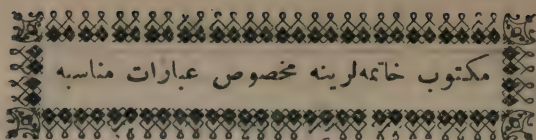 مكتوب خاتمه‌لرينه مخصوص عبارات مناسبه